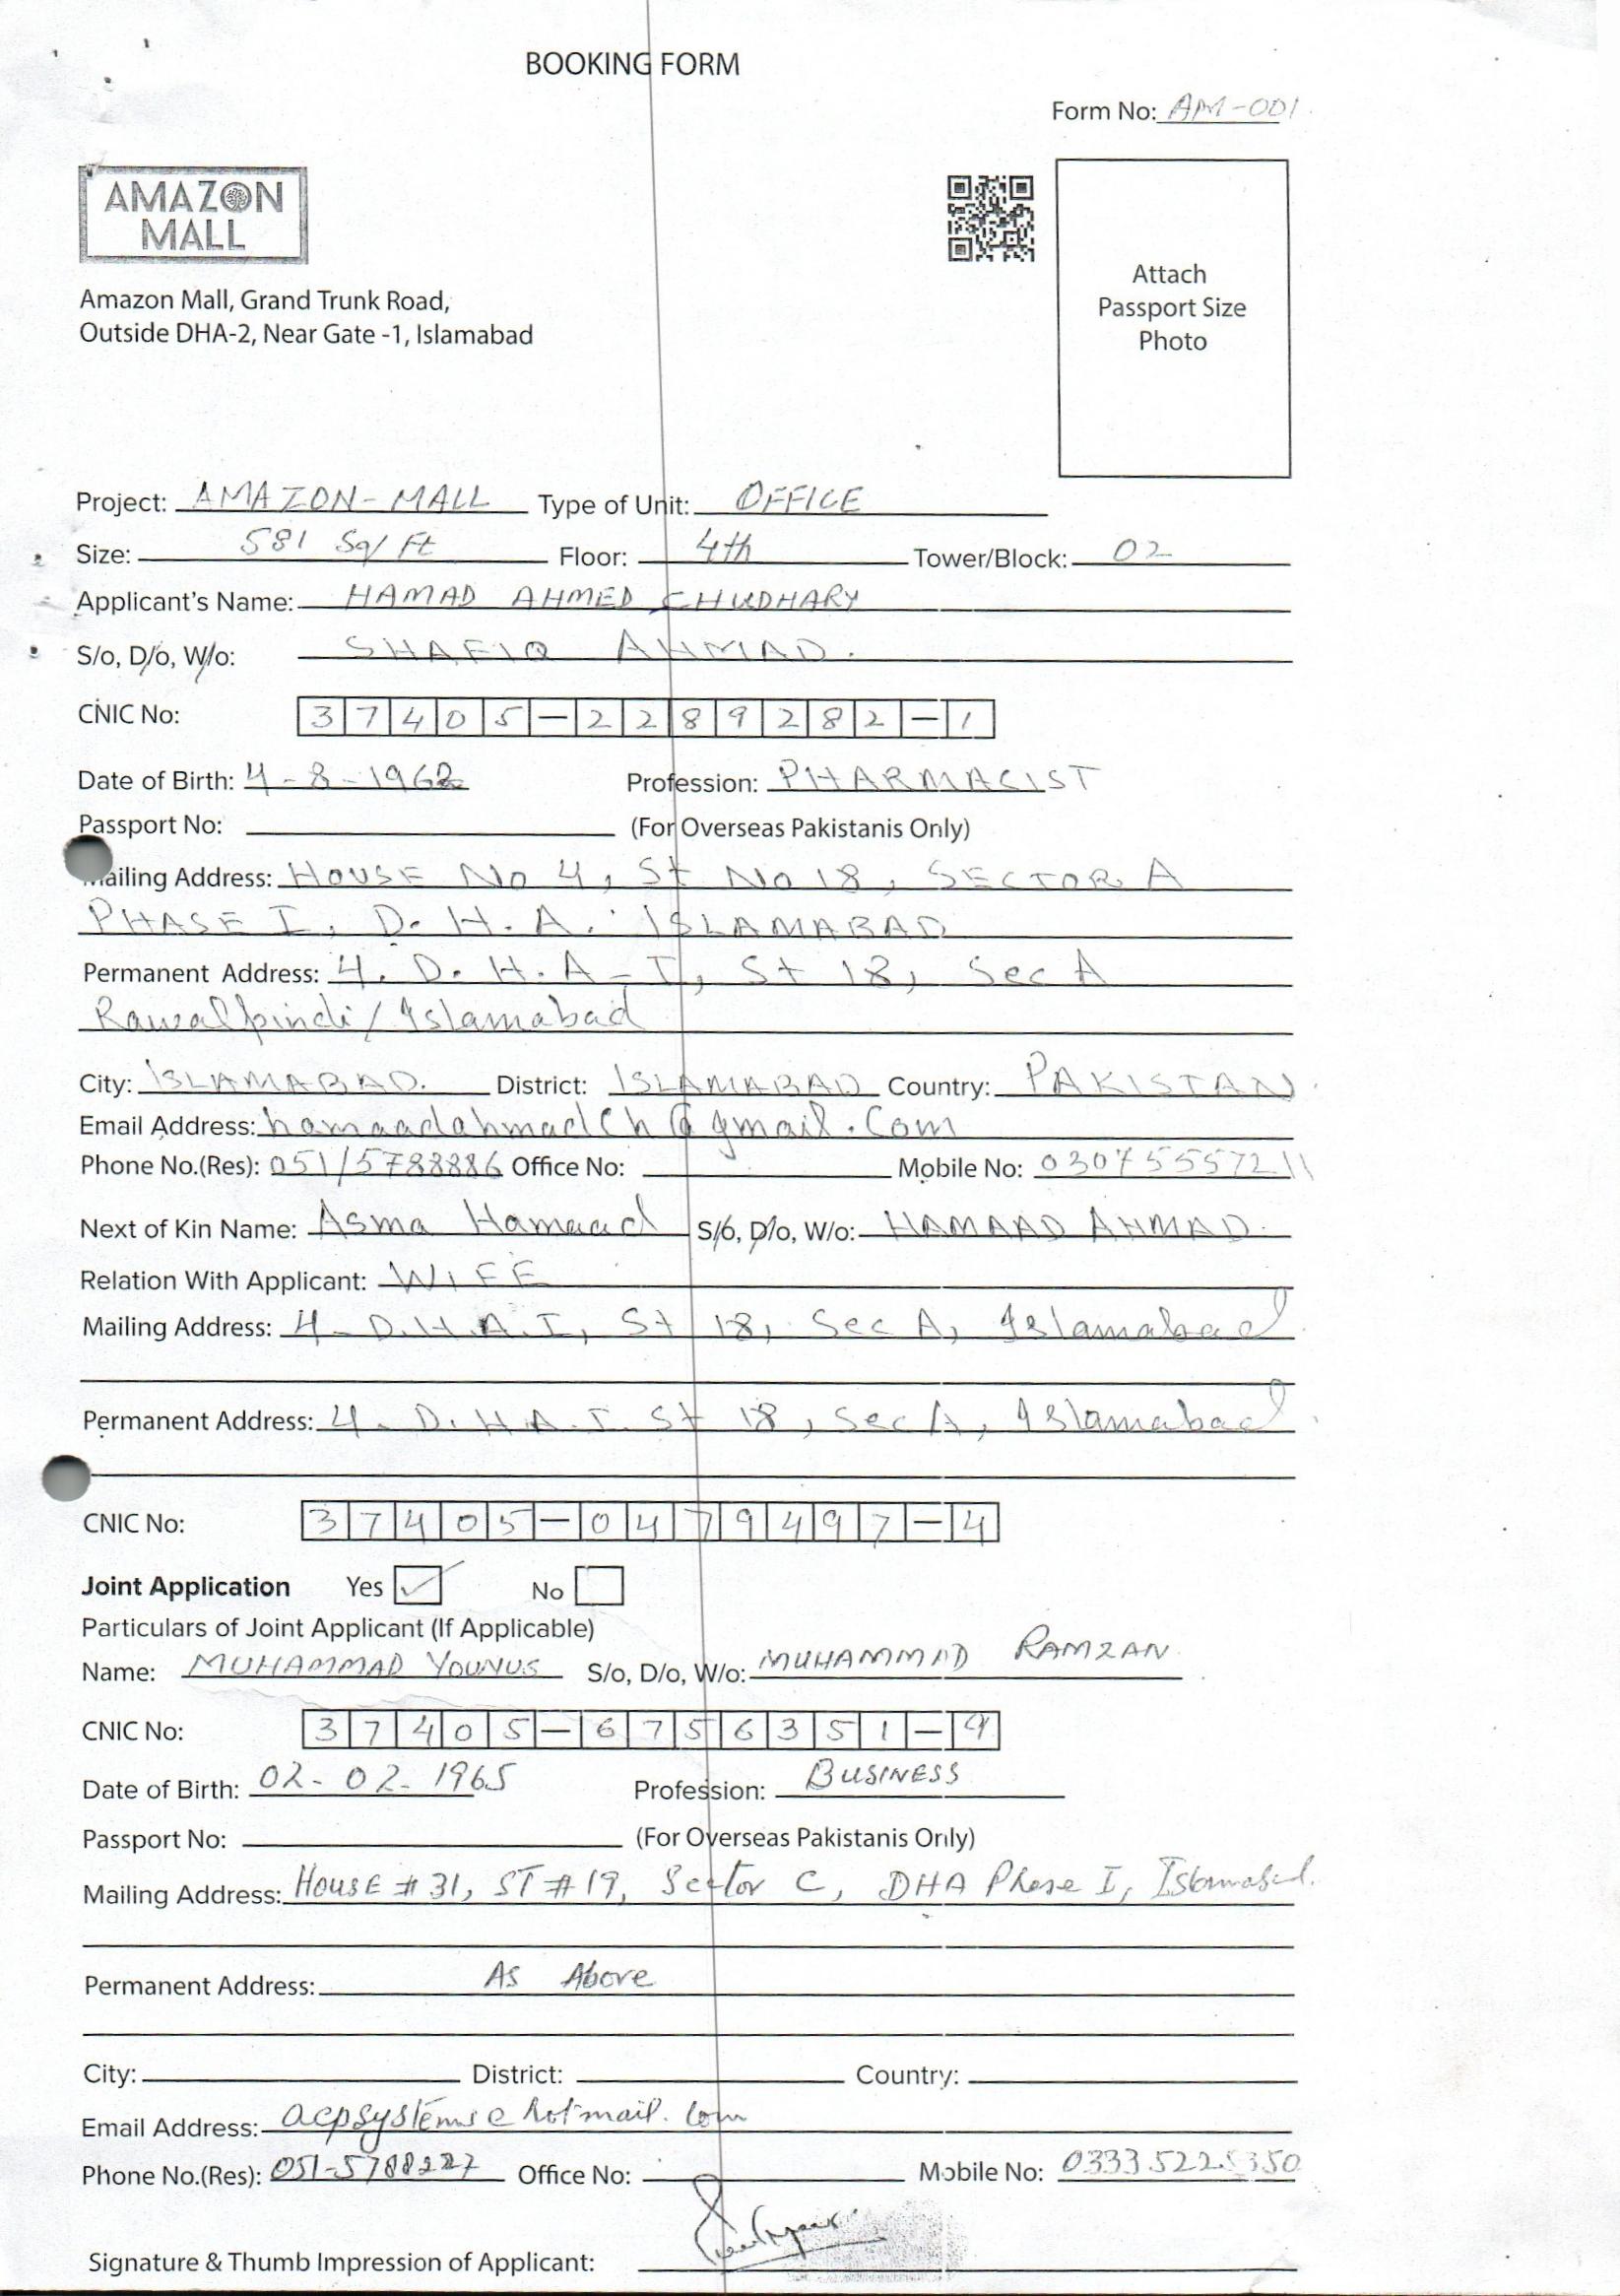 BOOKING FORM
Form No: AM-001
AMAZON
MALL
Amazon Mall, Grand Trunk Road,
Outside DHA-2, Near Gate -1, Islamabad
Attach
Passport Size
Photo
Project: AMAZON-MALL Type of Unit: OFFICE
Size: 581 Sq/Ft Floor: 4th Tower/Block: 02
Applicant's Name: HAMAD AHMED CHUDHARY
S/o, D/o, W/o: SHAFIQ AHMAD.
CNIC No: 37405-2289282-1
Date of Birth: 4-8-1962 Profession: PHARMACIST
Passport No: (For Overseas Pakistanis Only)
Mailing Address: HOUSE No 4, St No 18, SECTOR A
PHASE I, D.H.A. ISLAMABAD
Permanent Address: 4. D.H.A-I, St 18, Sec A
Rawalpindi/Islamabad
City: ISLAMABAD. District: ISLAMABAD Country: PAKISTAN.
Email Address: hamaadahmadch@gmail.com
Phone No.(Res): 051/5788886 Office No: Mobile No: 03075557211
Next of Kin Name: Asma Hamaad S/o, D/o, W/o: HAMAAD AHMAD.
Relation With Applicant: WIFE
Mailing Address: 4-D.H.A.I, St 18, Sec A, Islamabad
Permanent Address: 4. D.H.A.I. St 18, Sec A, Islamabad
CNIC No: 37405-0479497-4
Joint Application Yes ✓ No
Particulars of Joint Applicant (If Applicable)
Name: MUHAMMAD YOUNUS S/o, D/o, W/o: MUHAMMAD RAMZAN
CNIC No: 37405-6756351-9
Date of Birth: 02-02-1965 Profession: BUSINESS
Passport No: (For Overseas Pakistanis Only)
Mailing Address: HOUSE # 31, ST # 19, Sector C, DHA Phase I, Islamabad.
Permanent Address: As Above
City: District: Country:
Email Address: acpsystems@hotmail.com
Phone No.(Res): 051-5788227 Office No: Mobile No: 03335225350
Signature & Thumb Impression of Applicant: